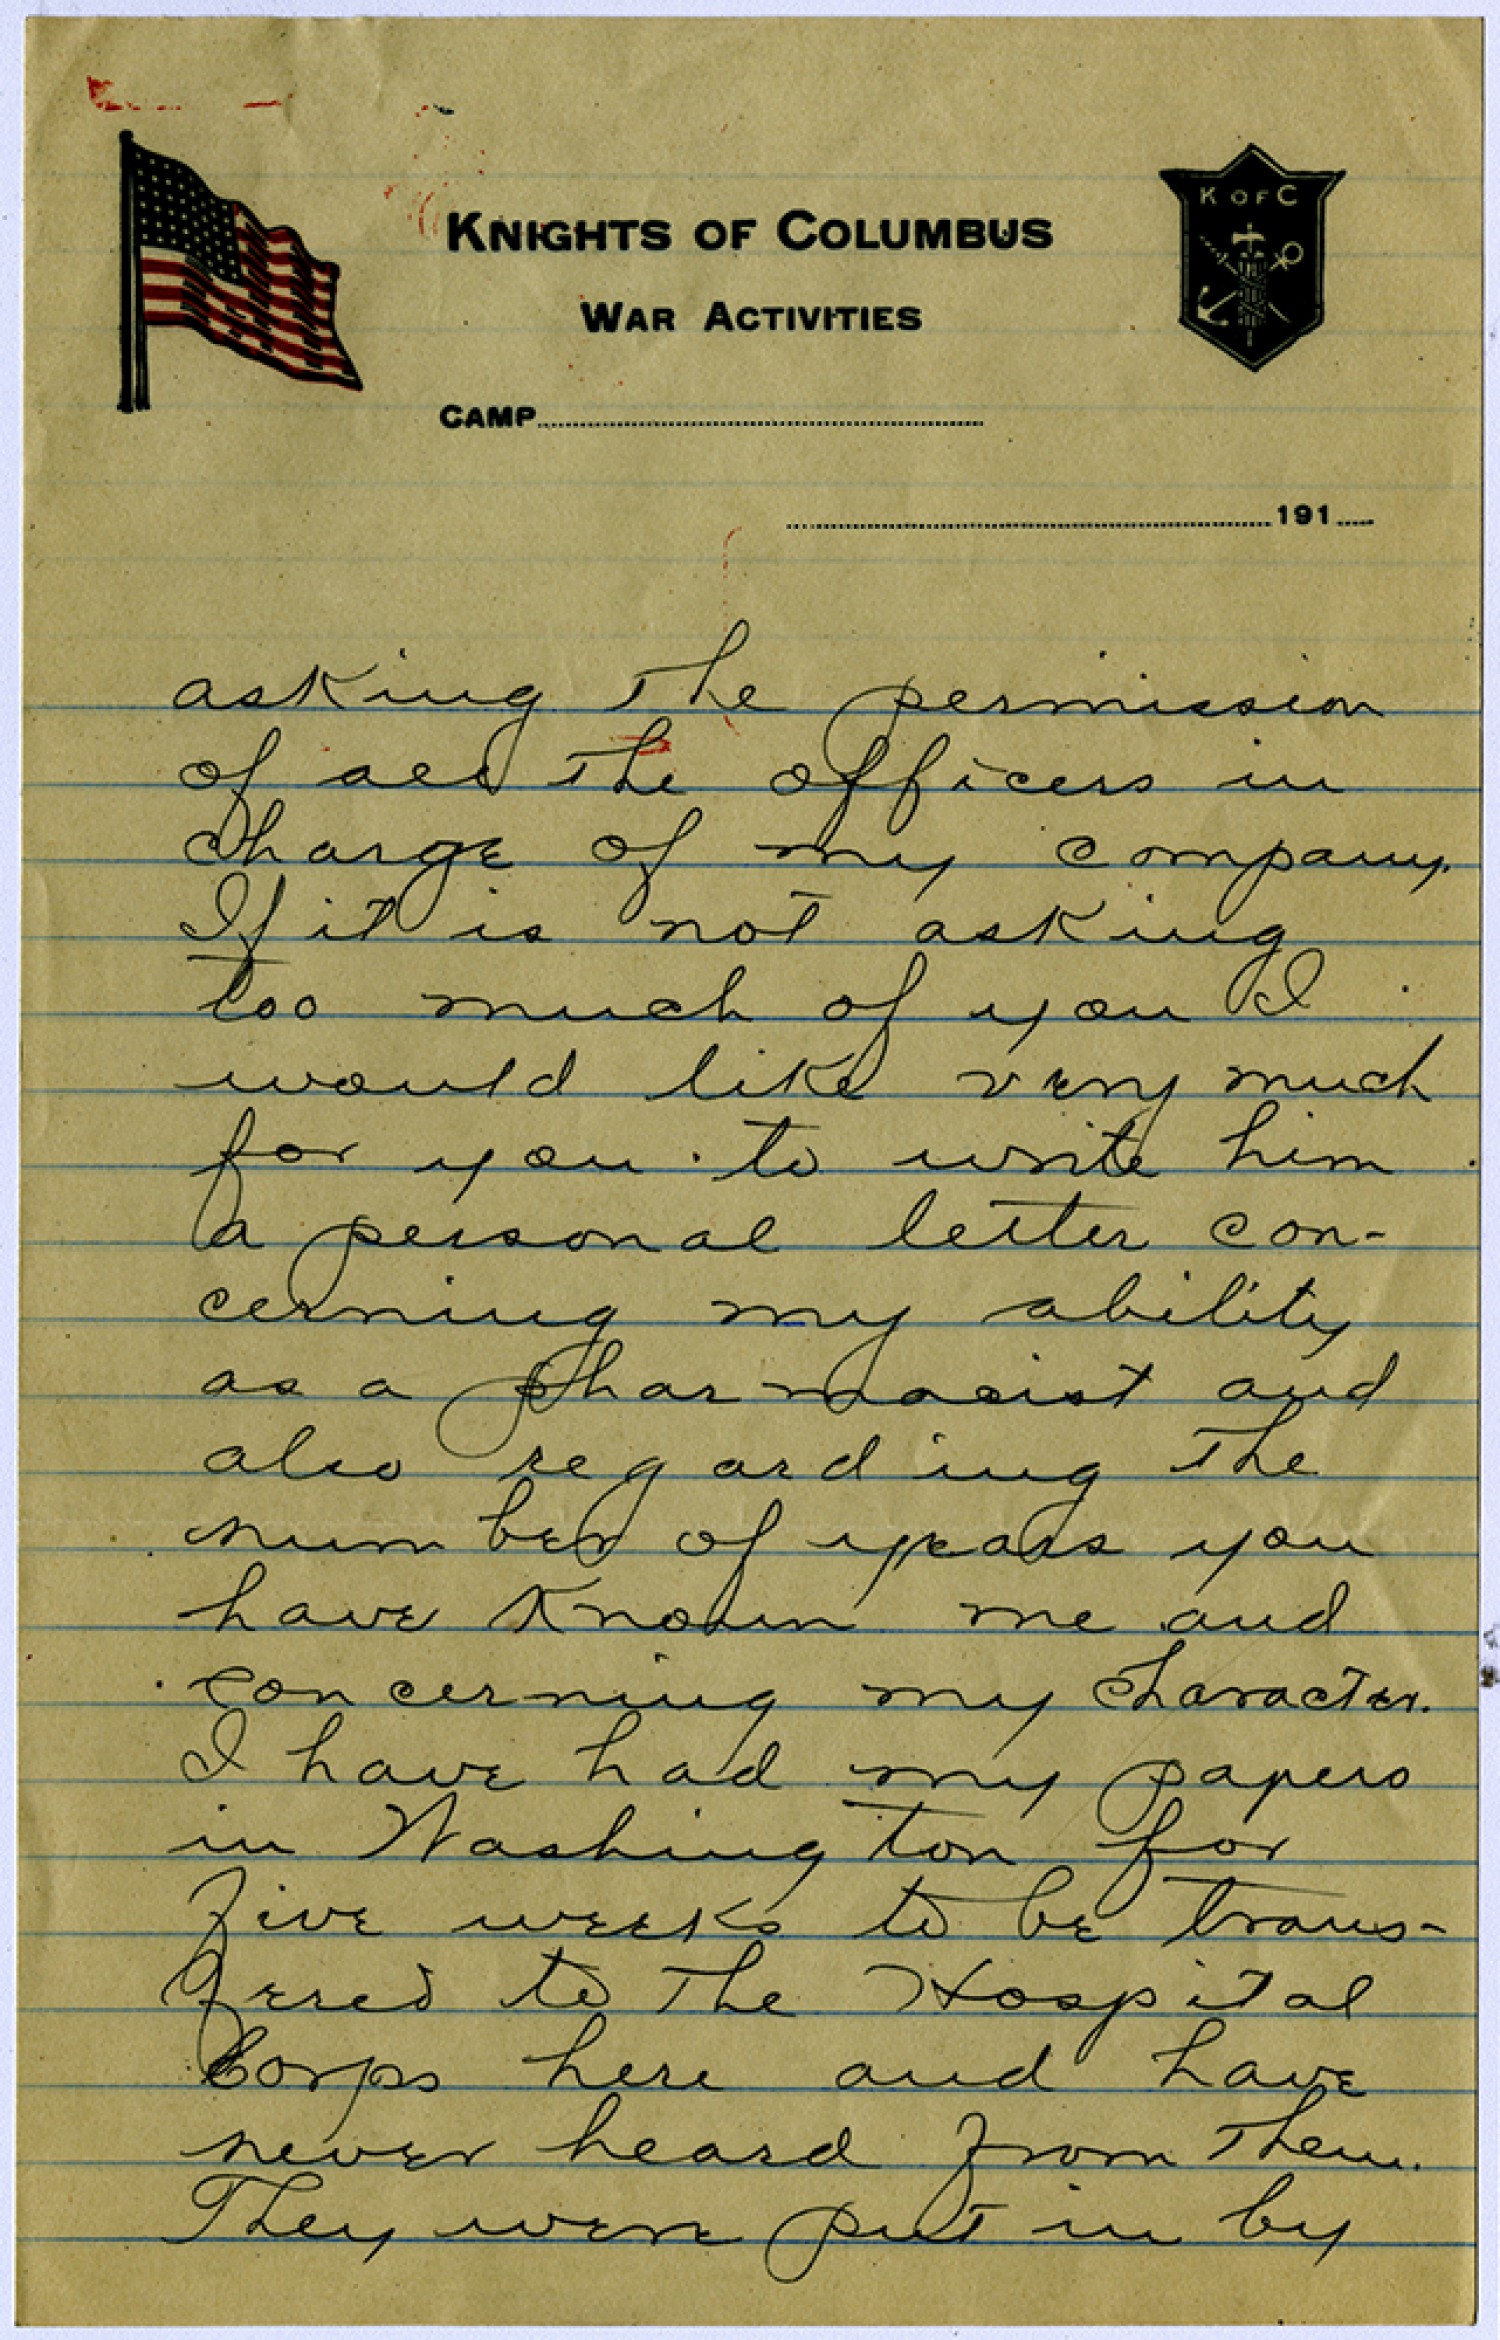 K OF C
KNIGHTS OF COLUMBUS
WAR ACTIVITIES
CAMP
191
asking the permission
of all the officers in
charge of my company.
If it is not asking
too much of you I
would like very much
for you to write him
a personal letter con-
cerning my ability
as a pharmacist and
also regarding the
number of years you
have known me and
concerning my character.
I have had my papers
in Washington for
five weeks to be trans-
fered to the Hospital
Corps here and have
never heard from them.
They were put in by